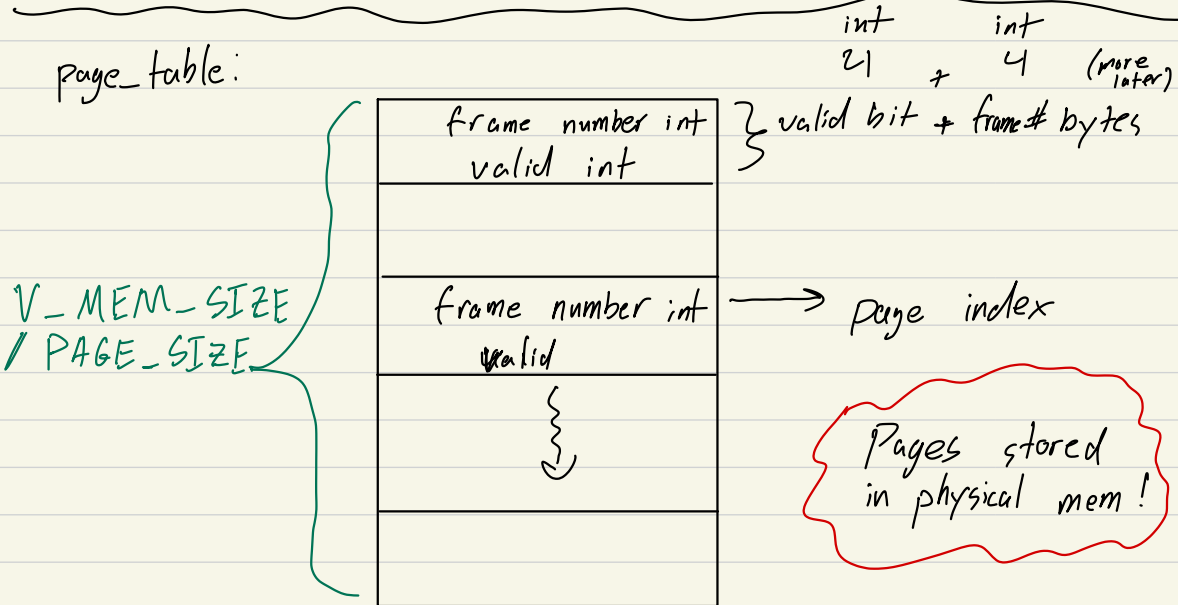 int int
page_table:
21 + 4 (more later)
frame number int
valid int
valid bit + frame# bytes
V_MEM_SIZE
/ PAGE_SIZE
frame number int
valid
page index
Pages stored
in physical mem!